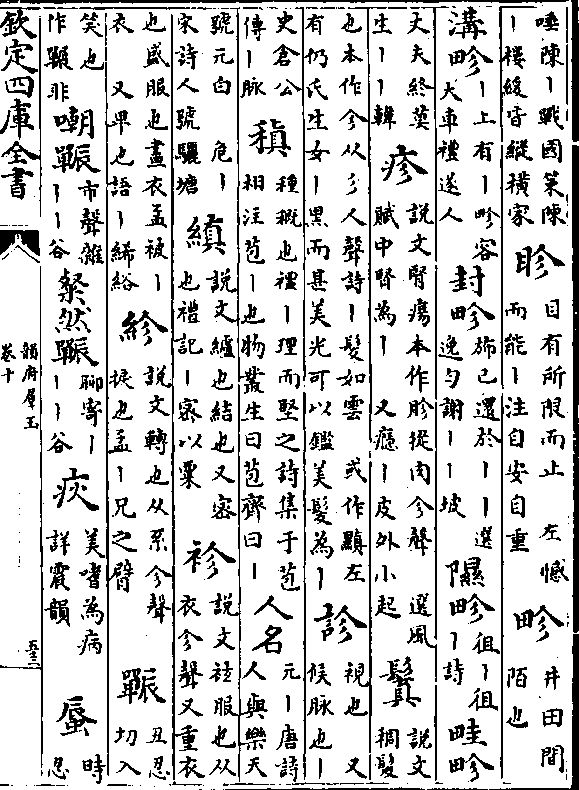 唾陳丨戰國策陳
丨樓緩皆縱横家
眕
目有所限而止 左憾
而能丨注自安自重
畛
井田間
陌也
溝畛
丨上有丨畛容
大車禮遂人
封畛
施已還於丨丨選
逸勾謝丨丨坡
隰畛
徂丨徂
丨詩
畦畛
丈夫終莫
生丨丨韓
疹
說文脣瘍本作胗從肉㐱聲 選風
賦中脣為丨 又癮丨皮外小起
鬒
說文
稠髮
也本作㐱从彡人聲詩丨髮如雲 或作黰左
有仍氏生女丨黑而甚美光可以鑑美髮為丨
診
視也 又
候脉也丨
史倉公
傳丨脉
稹
種穊也禮丨理而堅之詩集于苞
栩注苞丨也物叢生曰苞齊曰丨
人名
元丨唐詩
人與樂天
號元白 危丨
宋詩人號驪塘
縝
說文纑也結也又密
也禮記丨密以栗
袗
說文袨服也从
衣㐱聲又重衣
也盛服也畫衣孟被丨
衣 又單也語丨絺綌
紾
說文轉也从糸㐱聲
捩也孟丨兄之臂
辴
丑忍
切入
笑也
作囅非
嘲辴
市聲雜
丨丨谷
粲然辴
聊寄丨
丨丨谷
疢
美嗜為病
詳震韻
蜃
時
忍
欽定四庫全書
韻府羣玉
卷十